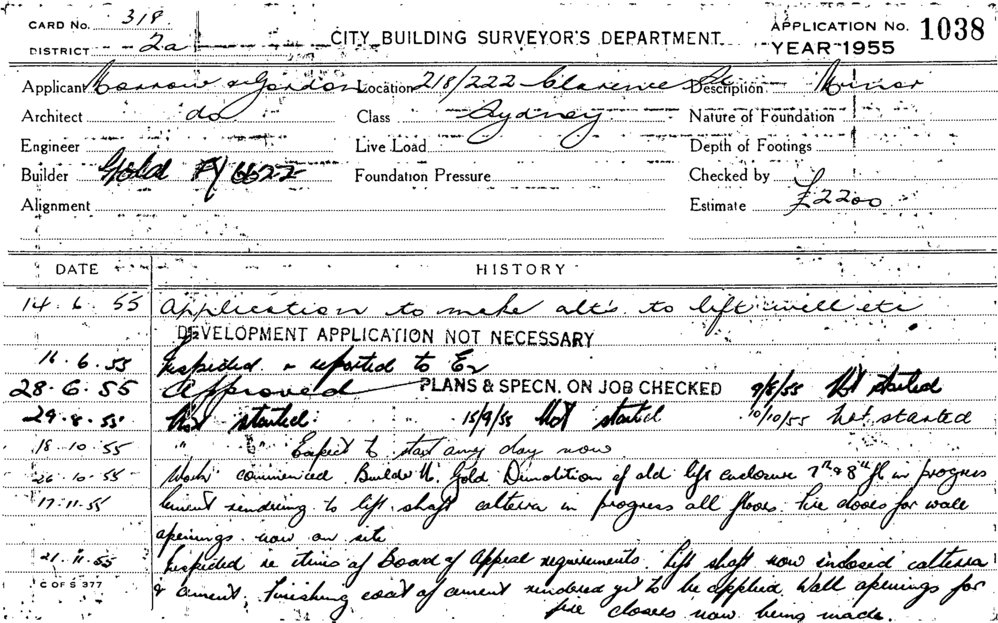 CARD No. 318
DISTRICT 2a
CITY BUILDING SURVEYOR'S DEPARTMENT
APPLICATION No. 1038
YEAR 1955
Applicant Morrow & Gordon Location 218/222 Clarence St Description Minor
Architect do Class Sydney Nature of Foundation
Engineer Live Load Depth of Footings
Builder Gold FY 6622 Foundation Pressure Checked by
Alignment Estimate £2200
DATE HISTORY
14.6.55 Application to make alt's to lift well etc
DEVELOPMENT APPLICATION NOT NECESSARY
16.6.55 Inspected & reported to
28.6.55 Approved PLANS & SPECN. ON JOB CHECKED 9/8/55 Not started
29.8.55 Not started. 15/9/55 Not started 10/10/55 not started
18.10.55 " " Expect to start any day now
26.10.55 Work commenced. Builder Gold Demolition of old lift enclosure 7th & 8th fl in progress
17.11.55 Cement rendering to lift shaft in progress all floors. Fire doors for wall
openings now on site
21.11.55 Inspected re items of Board of Appeal requirements. Lift shaft now inclosed
& cement. Finishing coat of cement rendered yet to be applied. Wall openings for
C OF S 377
fire doors now being made.